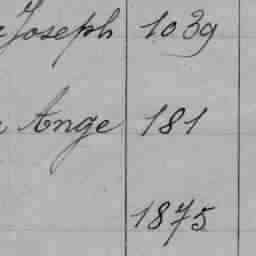 Joseph 1039
Ange 181
1875